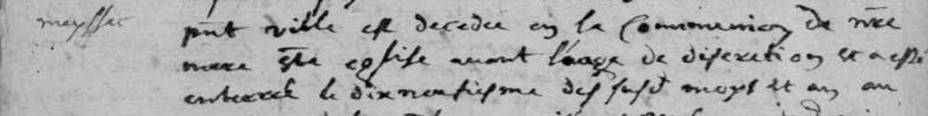 meyssac
pnt ville est decedee en la Communion de nre
mere ste eglise avant l'aage de discretion et a esté
enterree le dixneufiesme des susd moys et an au